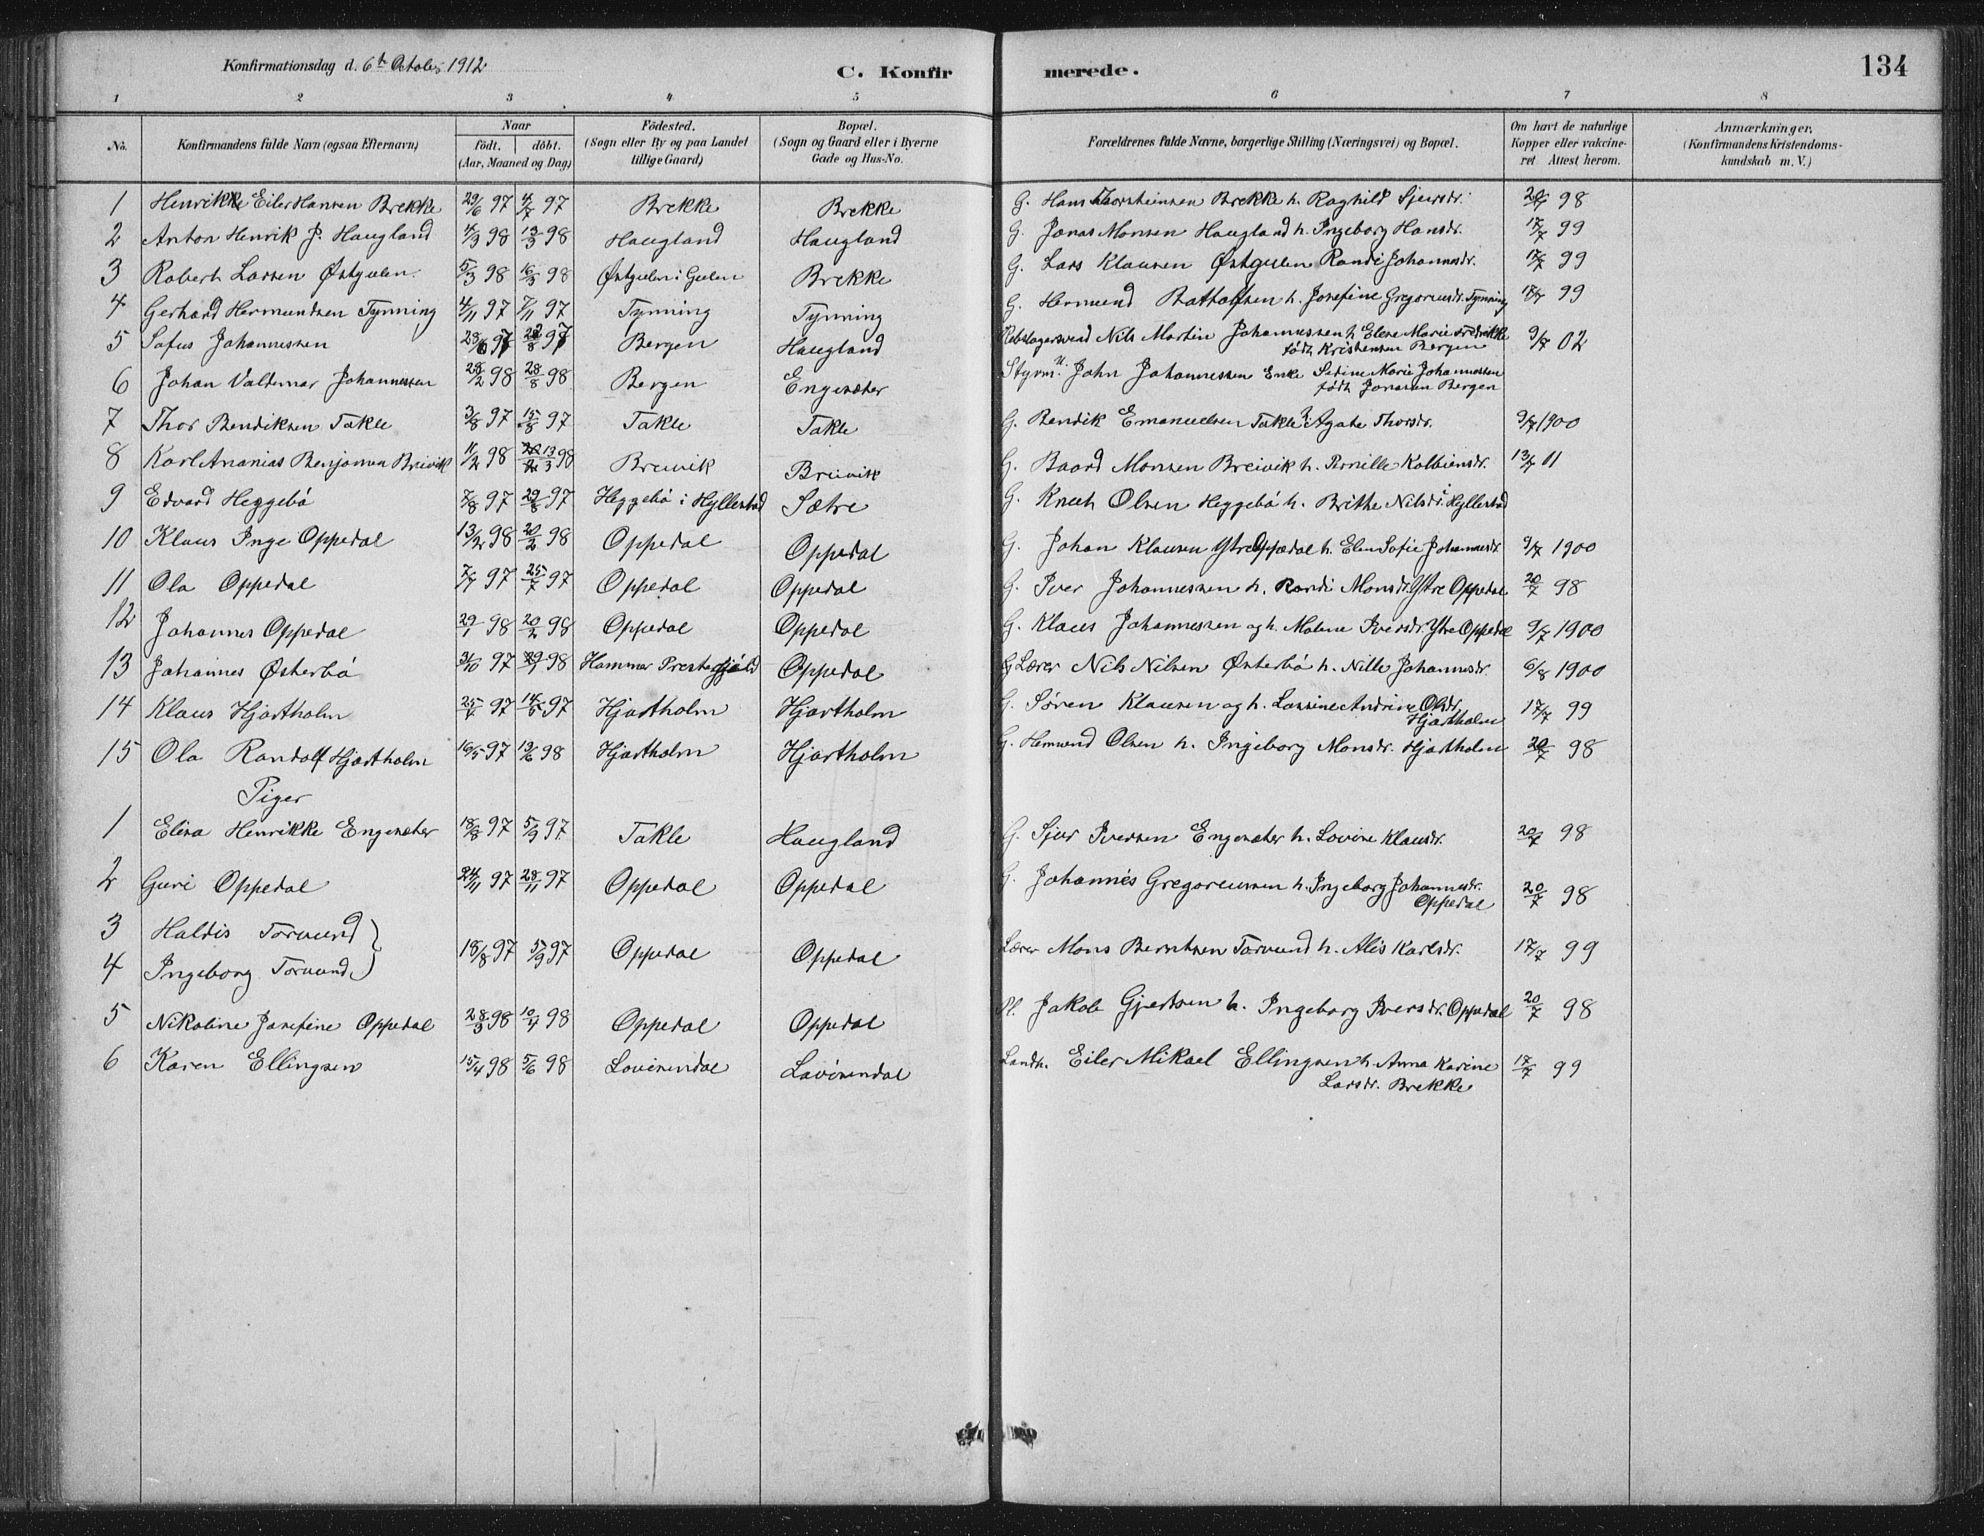 Konfirmationsdag d. 6te October 1912
C. Konfirmerede.
134
1 2 3 4 5 6 7 8
No. Konfirmandens fulde Navn (ogsaa Efternavn) Naar födt. döbt. (Aar, Maaned og Dag) Födested. (Sogn eller By og paa Landet tillige Gaard) Bopæl. (Sogn og Gaard eller i Byerne Gade og Hus-No. Forældrenes fulde Navne, borgerlige Stilling (Næringsvei) og Bopæl. Om havt de naturlige Kopper eller vakcineret Attest herom. Anmærkninger. (Konfirmandens Kristendomskundskab m. V.)
1 Henrikke Eiler Hansen Brekke 29/6 97 4/7 97 Brekke Brekke G. Hans Thorsteinsen Brekke h. Raghild Sjursdr. 20/7 98
2 Anton Henrik J. Haugland 4/3 98 13/3 98 Haugland Haugland G. Jonas Monsen Haugland h. Ingeborg Hansdr. 17/7 99
3 Robert Larsen Østgulen. 5/3 98 16/3 98 Østgulen i Gulen Brekke G. Lars Klausen Østgulen Randi Johannesdr. 17/7 99
4 Gerhard Hermundsen Tynning 4/11 97 7/11 97 Tynning Tynning G. Hermund Battolfsen h. Josefine Gregoriusdr. Tynning 18/7 99
5 Sofus Johannessen 23/6 97 22/8 97 Bergen Haugland Rebslagersvend Nils Martin Johannessen h. Elene Marie Fredrikke
født Kristensen Bergen 9/7 02
6 Johan Valdemar Johannessen 28/2 98 28/8 98 Bergen Engesæter Styrm. John Johannessen Enke Sedine Marie Johannessen
født Jonsson Bergen
7 Thor Bendiksen Takle 3/8 97 15/8 97 Takle Takle G. Bendik Emanuelsen Takle h. Agate Thorsdr. 9/7 1900
8 Karl Ananias Benjamin Breivik 11/2 98 13/3 98 Breivik Breivik G. Baard Monsen Breivik h. Pernille Kolbeinsdr. 13/7 11
9 Edvard Heggebö 7/8 97 29/8 97 Heggebö i Hyllestad Sætre G. Knut Olsen Heggebö h. Brithe Nilsdr. i Hyllestad
10 Klaus Inge Oppedal 13/2 98 20/2 98 Oppedal Oppedal G. Johan Klausen Ytre Oppedal h. Elen Sofie Johannesdr. 9/7 1900
11 Ola Oppedal 7/7 97 25/7 97 Oppedal Oppedal G. Iver Johannessen h. Randi Monsdr. Ytre Oppedal 20/7 98
12 Johannes Oppedal 29/1 98 20/2 98 Oppedal Oppedal G. Klaus Johannessen og h. Malene Iversdr. Ytre Oppedal 9/7 1900
13 Johannes Østerbö 3/10 97 29/1 98 Hammer Prestegjæld Oppedal G Lærer Nils Nilsen Østerbö h. Nille Johannesdr. 6/8 1900
14 Klaus Hjartholm 25/4 97 14/5 97 Hjartholm Hjartholm G. Søren Klausen og h. Lassine Andrine Olsdr.
Hjartholm 17/7 99
15 Ola Randolf Hjartholm 16/5 97 13/6 98 Hjartholm Hjartholm G. Hermund Olsen h. Ingeborg Monsdr. Hjartholm 20/7 98
Piger
1 Elina Henrikke Engesæter 18/8 97 5/9 97 Takle Haugland G. Sjur Iversen Engesæter h. Lovise Klausdr. 20/7 98
2 Guri Oppedal 24/11 97 28/11 97 Oppedal Oppedal G. Johannes Gregoreussen h. Ingeborg Johannesdr.
Oppedal 20/7 98
3 Haldis Torvund }
4 Ingeborg Torvund } 18/8 97 5/9 97 Oppedal Oppedal Lærer Mons Berntsen Torvund h. Alis Karlsdr. 17/7 99
5 Nikoline Josefine Oppedal 28/3 98 10/4 98 Oppedal Oppedal Pl. Jakob Gjertsen h. Ingeborg Iversdr. Oppedal 20/7 98
6 Karen Ellingsen 15/4 98 5/6 98 Lovisendal Lavisendal Landh. Eiler Mikael Ellingsen h. Anna Karine
Larsdr. Brekke 17/7 99